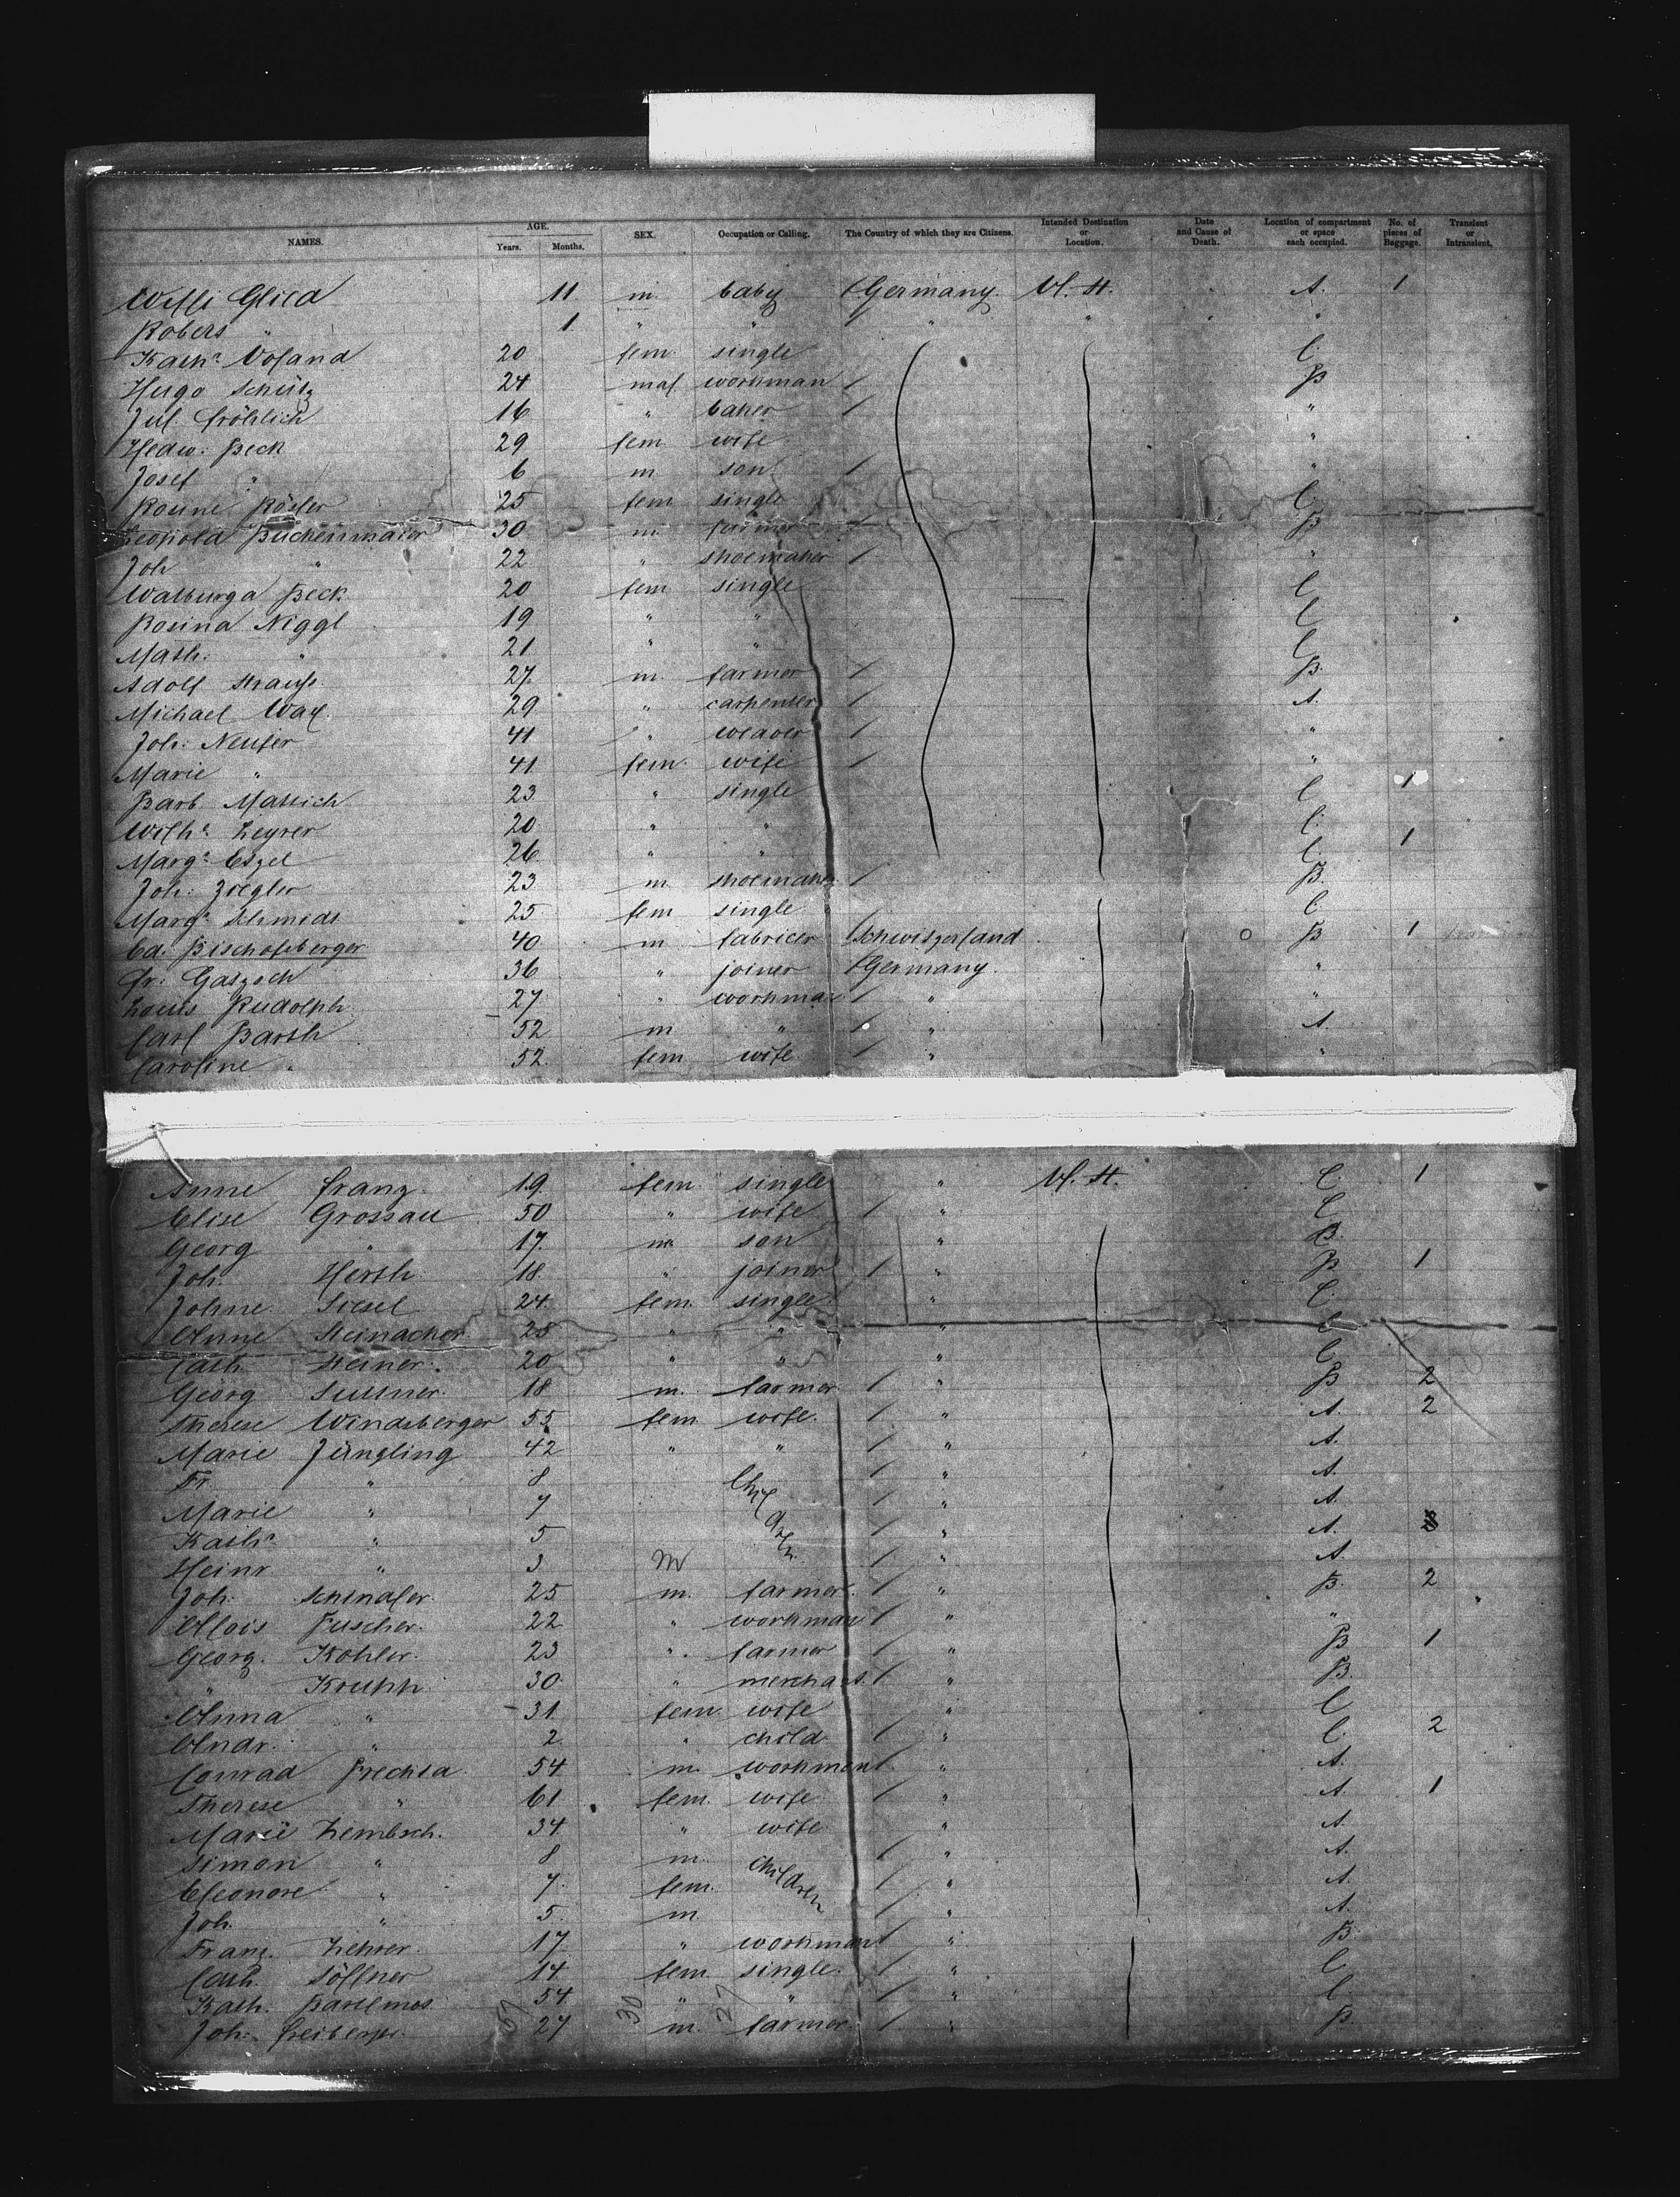 NAMES. AGE. Years. Months. SEX. Occupation or Calling. The Country of which they are Citizens. Intended Destination or Location. Date and Cause of Death. Location of compartment or space each occupied. No. of pieces of Baggage. Transient or Intransient.
Willi Glied 11 m. baby Germany. U. St. A. 1
Robert " 1 " " " " "
Kathᵃ Vofand 20 fem single C.
Hugo Schütz 24 mal. workman B
Jul. Fröhlich 16 " baker "
Hedw: Beck 29 fem wife "
Josef " 6 m son "
Rosine Rösler 25 fem single C.
Leopold Buchenmaier 30 m. farmer B
Joh " 22 " shoemaker "
Walburga Beck 20 fem single C
Rosina Niggl 19 " " C
Math: " 21 " " C
Adolf Strauß 27 m farmer B.
Michael Wax. 29 " carpenter A.
Joh: Neufer 41 " weaver "
Marie " 41 fem. wife "
Barb. Mattich 23 " single C 1
Wilhᵉ Leyrer 20 " " C.
Margᵃ Etzel 26 " " C. 1
Joh: Ziegler 23 m. shoemaker B.
Margᵃ Schmidt 25 fem single C.
Ed. Bischofsberger 40 m fabricer Schwitzerland B 1
Fr: Gatzoch 36 " joiner Germany. "
Louis Rudolph 27 " workman " "
Carl Barth 52 m " " A.
Caroline " 52 fem wife " "
Anne Franz. 19. fem. single " U. St. C. 1
Elise Grossau 50 " wife " C
Georg " 17. m son " B.
Joh. Hersh. 18. " joiner " B 1
Johne Siesel 24. fem. single " C.
Anne Steinacher 28 " " " C
Cath. Steiner. 20 " " " C
Georg Suttner. 18 m. farmer " B 2
Therese Windsberger 55 fem. wife. " A. 2
Marie Jüngling 42 " " " A.
Fr. " 8 Children " A.
Marie " 7 " A.
Kathᵃ " 5 " A.
Heinr " 3 m " A.
Joh. Schindler. 25 m. farmer. " B. 2
Alois Fuscher. 22 " workman " "
Georg. Kohler. 23 " farmer " B 1
" Krupp 30. " merchant. " B.
Anna " 31 fem. wife " C
Andr. " 2. " child " C. 2
Conrad Prechta 54 m. workman " A.
Therese " 61 fem. wife " A. 1
Marie Lembsch. 34. " wife " A.
Simon " 8 m. children " A.
Eleonore " 7. fem. " A.
Joh. " 5. m " A.
Franz. Lehrer. 17 " workman " B.
Cath. Söllner 14 fem. single. " C
Kath. Bartlmos 54 " " " C.
Joh. Freiberger. 27 m. farmer. " B
57 30 27